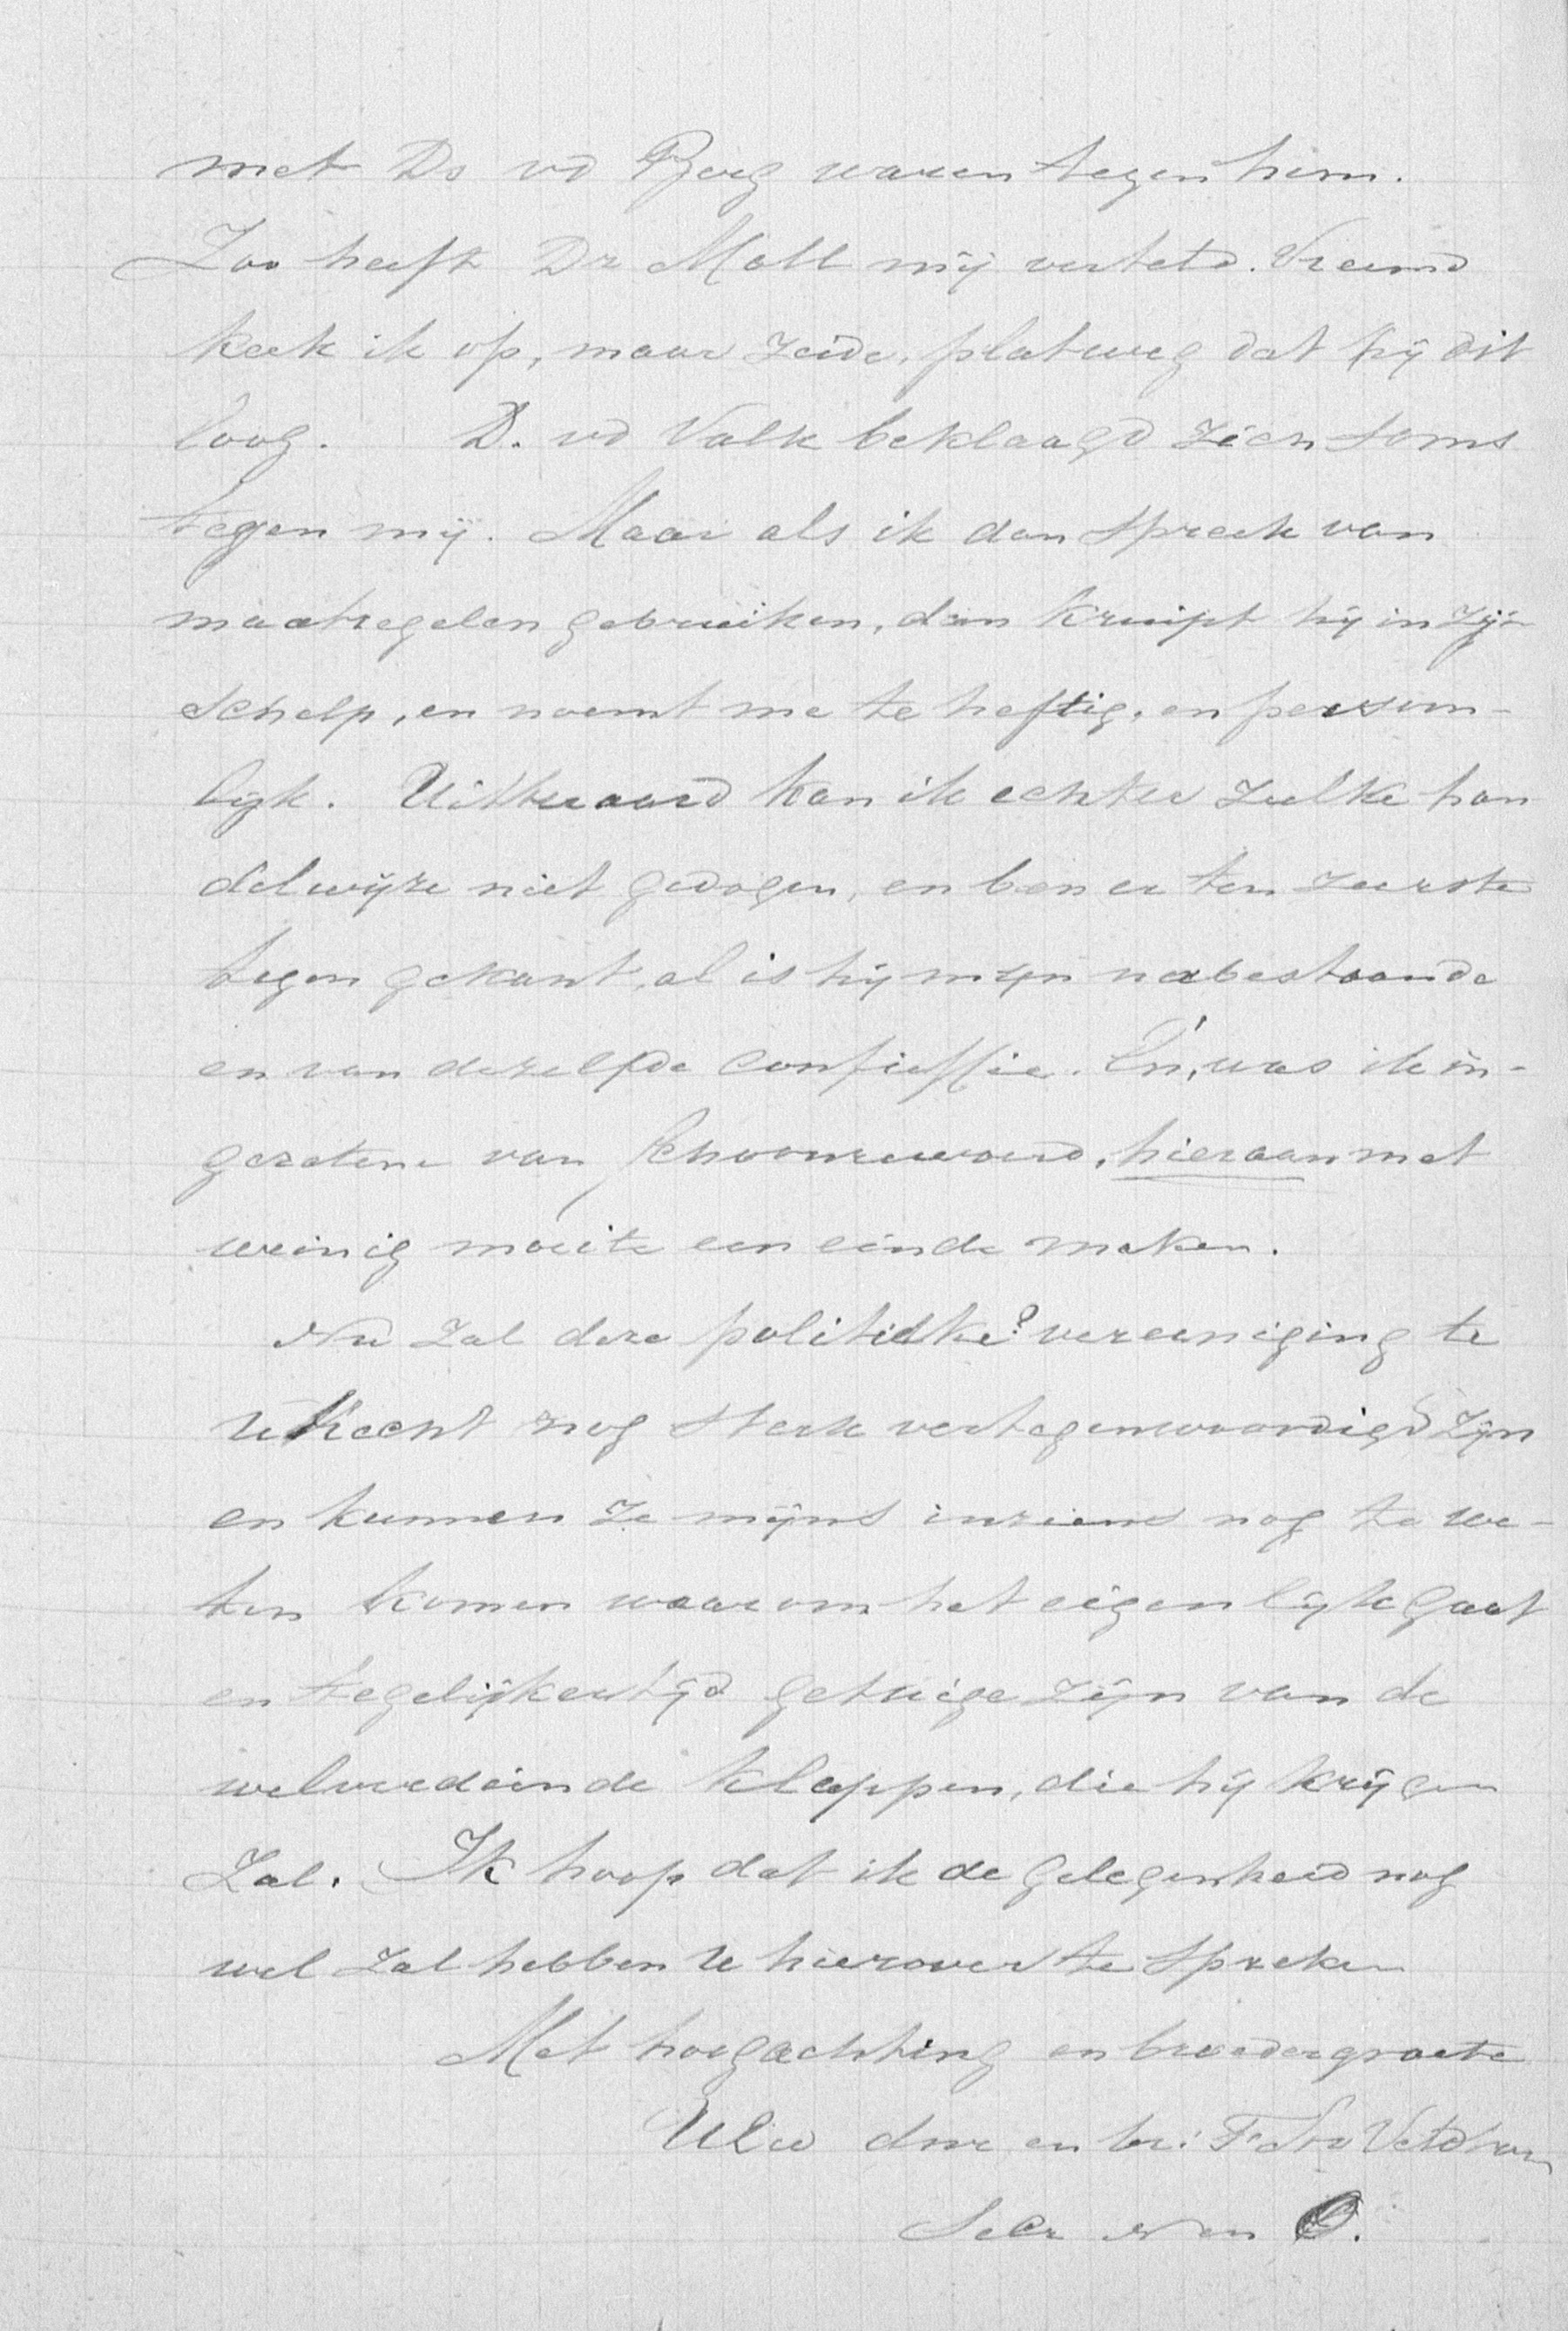 met Ds vd Berg waren tegen hem.
Zoo heeft Dr Moll mij verteld. Vreemd
keek ik op, maar zeide, platweg dat hij dit
loog. D. vd Valk beklaagd zich soms
tegen mij. Maar als ik dan spreek van
maatregelen gebruiken, dan kruipt hij in zijn
schelp, en noemt me te heftig, en persoon-
lijk. Uitteraard kan ik echter zulke han
delwijze niet gedogen, en ben er ten zeerste
tegen gekant, al is hij mijn nabestaande
en van dezelfde Confiessie. En, was ik in-
gezetene van Schoonrewoerd, hieraan met
weinig moeite een einde maken.
Nu zal deze politieke? vereeniging te
Utrecht nog sterk vertegenwoordigd zijn
en kunnen ze mijns inziens nog te we-
ten komen waarom het eigenlijk gaat
en tegelijkertijd getuige zijn van de
welverdiende klappen, die hij krijgen
zal. Ik hoop dat ik de gelegenheid nog
wel zal hebben U hierover te spreken
Met hoogachting en broedergroete
UEw dnr en br: